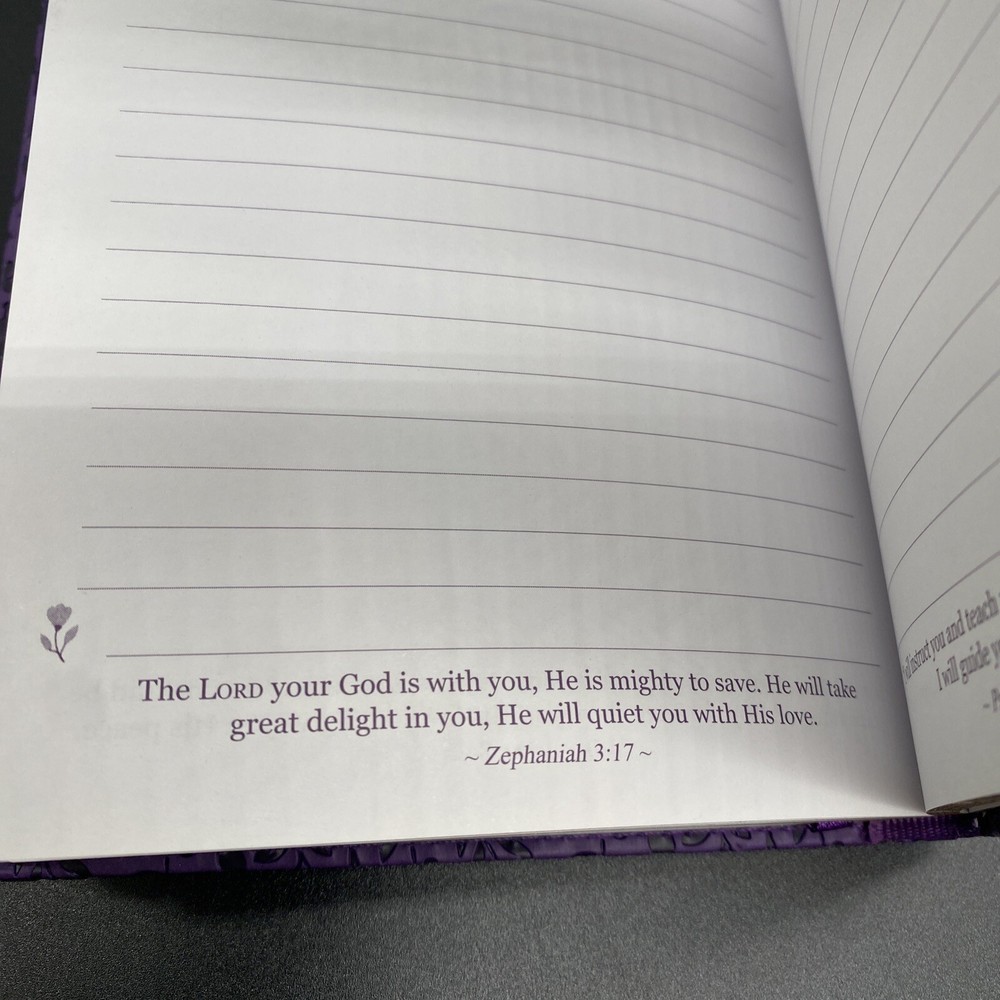 The LORD your God is with you, He is mighty to save. He will take
great delight in you, He will quiet you with His love.
~ Zephaniah 3:17 ~
instruct you and teach
I will guide